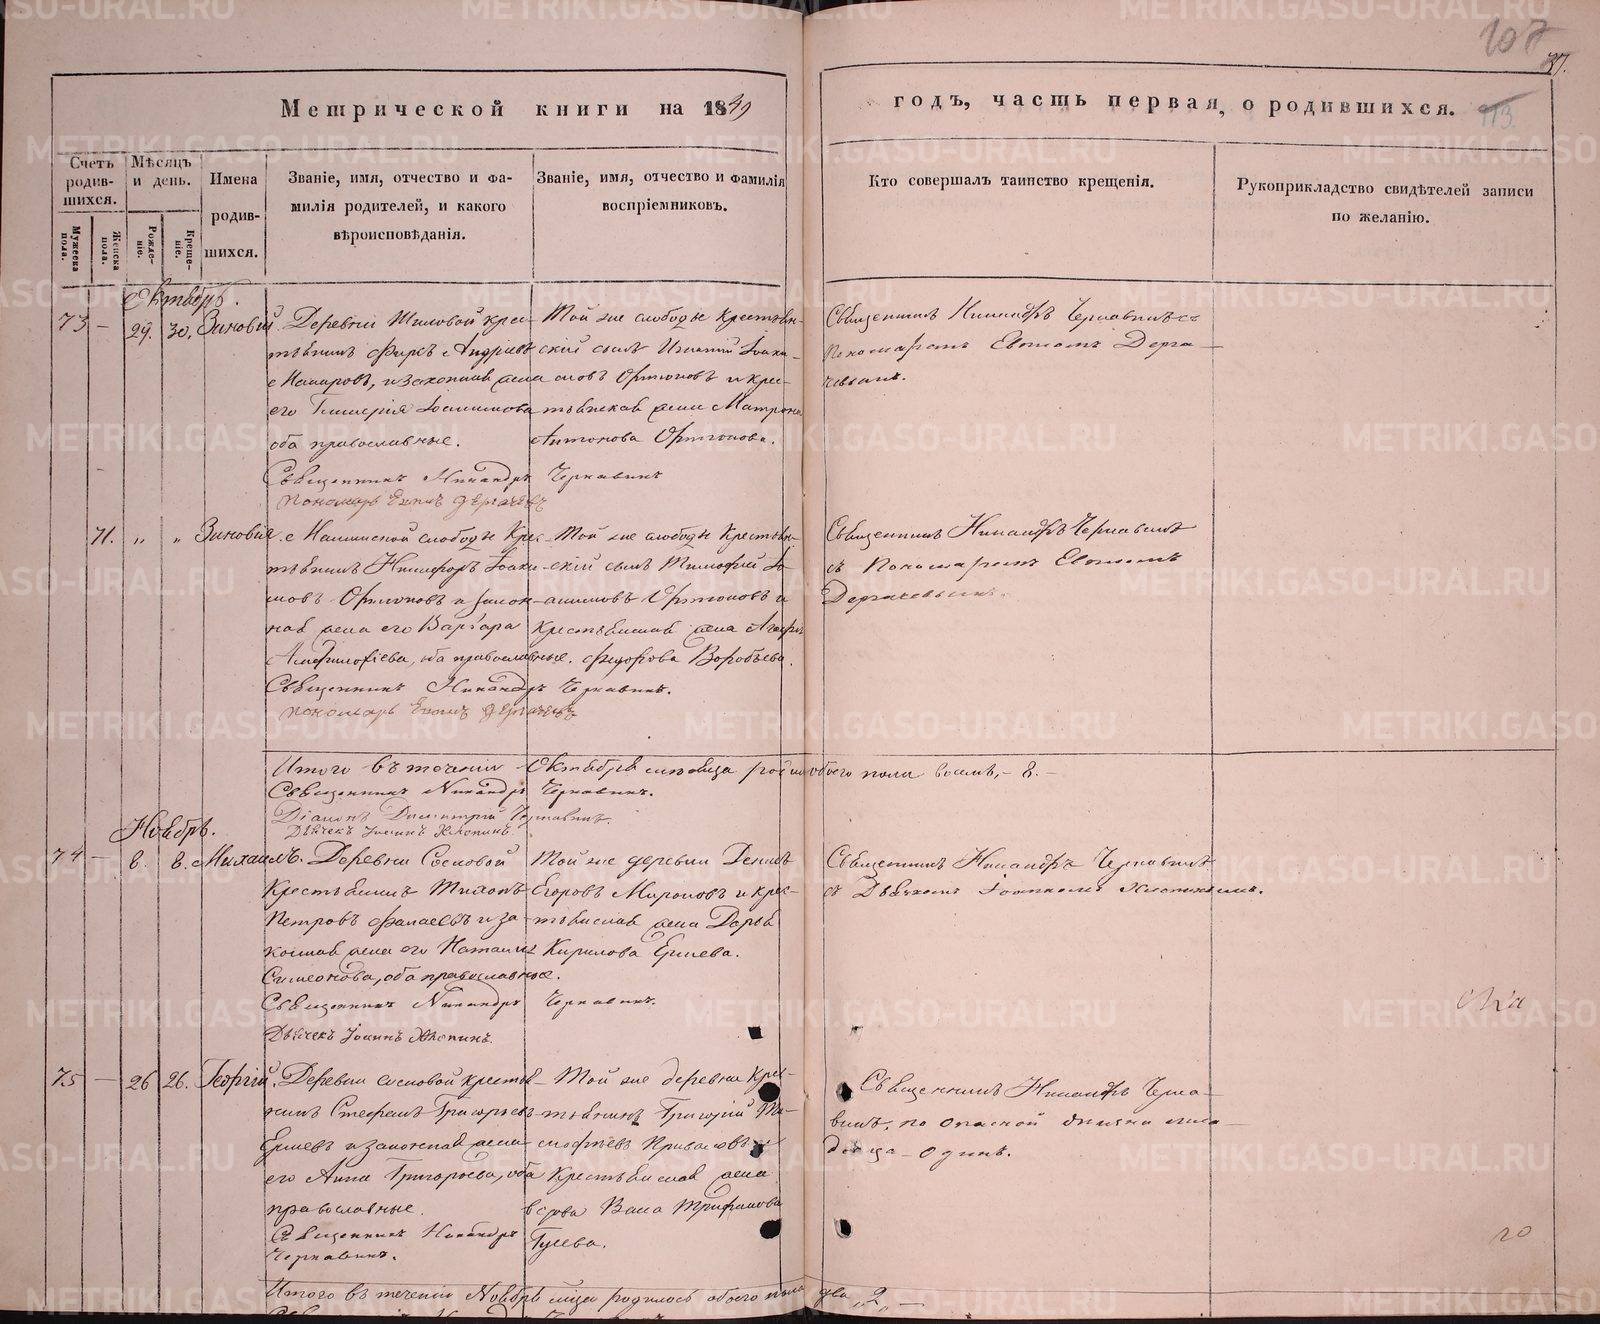 107
37.
Метрической книги на 1849
годъ, часть первая, о родившихся.
113.
Счетъ родив-шихся.
Мѣсяцъ и день.
Имена родив-шихся.
Званіе, имя, отчество и фа-
милія родителей, и какого
вѣроисповѣданія.
Званіе, имя, отчество и фамилія
воспріемниковъ.
Кто совершалъ таинство крещенія.
Рукоприкладство свидѣтелей записи
по желанію.
Мужеска пола.
Женска пола.
Рожде-ніе.
Креще-ніе.
Октябрь.
73 – 29. 30. Зиновій
Деревни крес-
тьянинъ Фирсъ Андріевъ
Макаровъ, и законная жена
его Гликерія Іоакимова
оба православные.
Священникъ Никандръ Чернавинъ
Пономарь Евѳимъ Дергачевъ
Той же слободы Крестьян-
скій сынъ Игнатій Іоаки-
мовъ Ортюновъ и крес-
тьянская жена Матрона
Антонова Ортюнова.
Священникъ Никандръ Чернавинъ съ
Пономаремъ Евѳимомъ Дерга-
чевымъ.
71. „ „ Зиновія.
слободы Крес-
тьянинъ Никифоръ Іоаки-
мовъ Ортюновъ и закон-
ная жена его Варвара
оба православные.
Священникъ Никандръ Чернавинъ.
Пономарь Евѳимъ Дергачевъ
Той же слободы Крестьян-
скій сынъ Тимофей Іо-
акимовъ Ортюновъ и
крестьянская жена
Федорова Воробьева.
Священникъ Никандръ Чернавинъ
съ Пономаремъ Евѳимомъ
Дергачевымъ.
Итого въ теченіи Октября месяца обоего пола восемь, – 8. –
Священникъ Никандръ Чернавинъ.
Діаконъ Димитрій Чернавинъ.
Дьячекъ Іоаннъ Хлопинъ.
Ноябрь.
74 – 8. 8. Михаилъ.
Деревни Сосновой
Крестьянинъ Тихонъ
Петровъ и за-
конная жена его Наталія
Симеонова, оба православные.
Священникъ Никандръ Чернавинъ.
Дьячекъ Іоаннъ Хлопинъ.
Той же деревни Денисъ
Егоровъ Мироновъ и крес-
тьянская жена Дарья
Кирилова Ершева.
Священникъ Никандръ Чернавинъ
съ Дьячкомъ Іоанномъ Хлопинымъ.
75 – 26 26. Георгій.
Деревни Сосновой крестья-
нинъ Стефанъ Григорьевъ
Ершевъ и законная жена
его Анна Григорьева, оба
православные.
Священникъ Никандръ
Чернавинъ.
Той же деревни Крес-
тьянинъ Григорій Ти-
мофѣевъ Приваловъ и
Крестьянская жена
вдова Васса Трифонова
Гусева.
Священникъ Никандръ Черна-
винъ, по опасной болезни мла-
денца – одинъ.
Итого въ теченіи Ноября месяца родилось обоего пола два „2„ –
METRIKI.GASO-URAL.RU